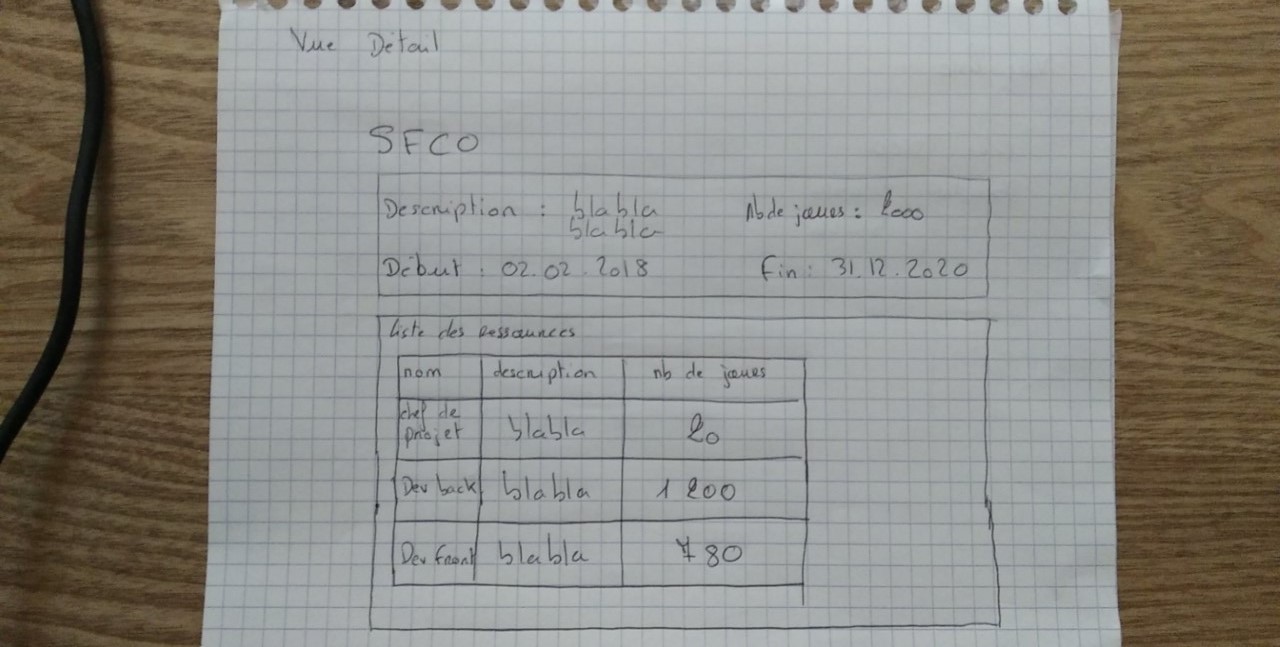 Vue Détail
SFCO
Description : blabla
blabla
Nb de jours : 2000
Début : 02.02.2018
Fin : 31.12.2020
liste des ressources
nom description nb de jours
chef de
projet blabla 20
Dev back blabla 1 200
Dev front blabla 780